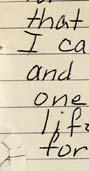 that
I ca
and
one
life
for